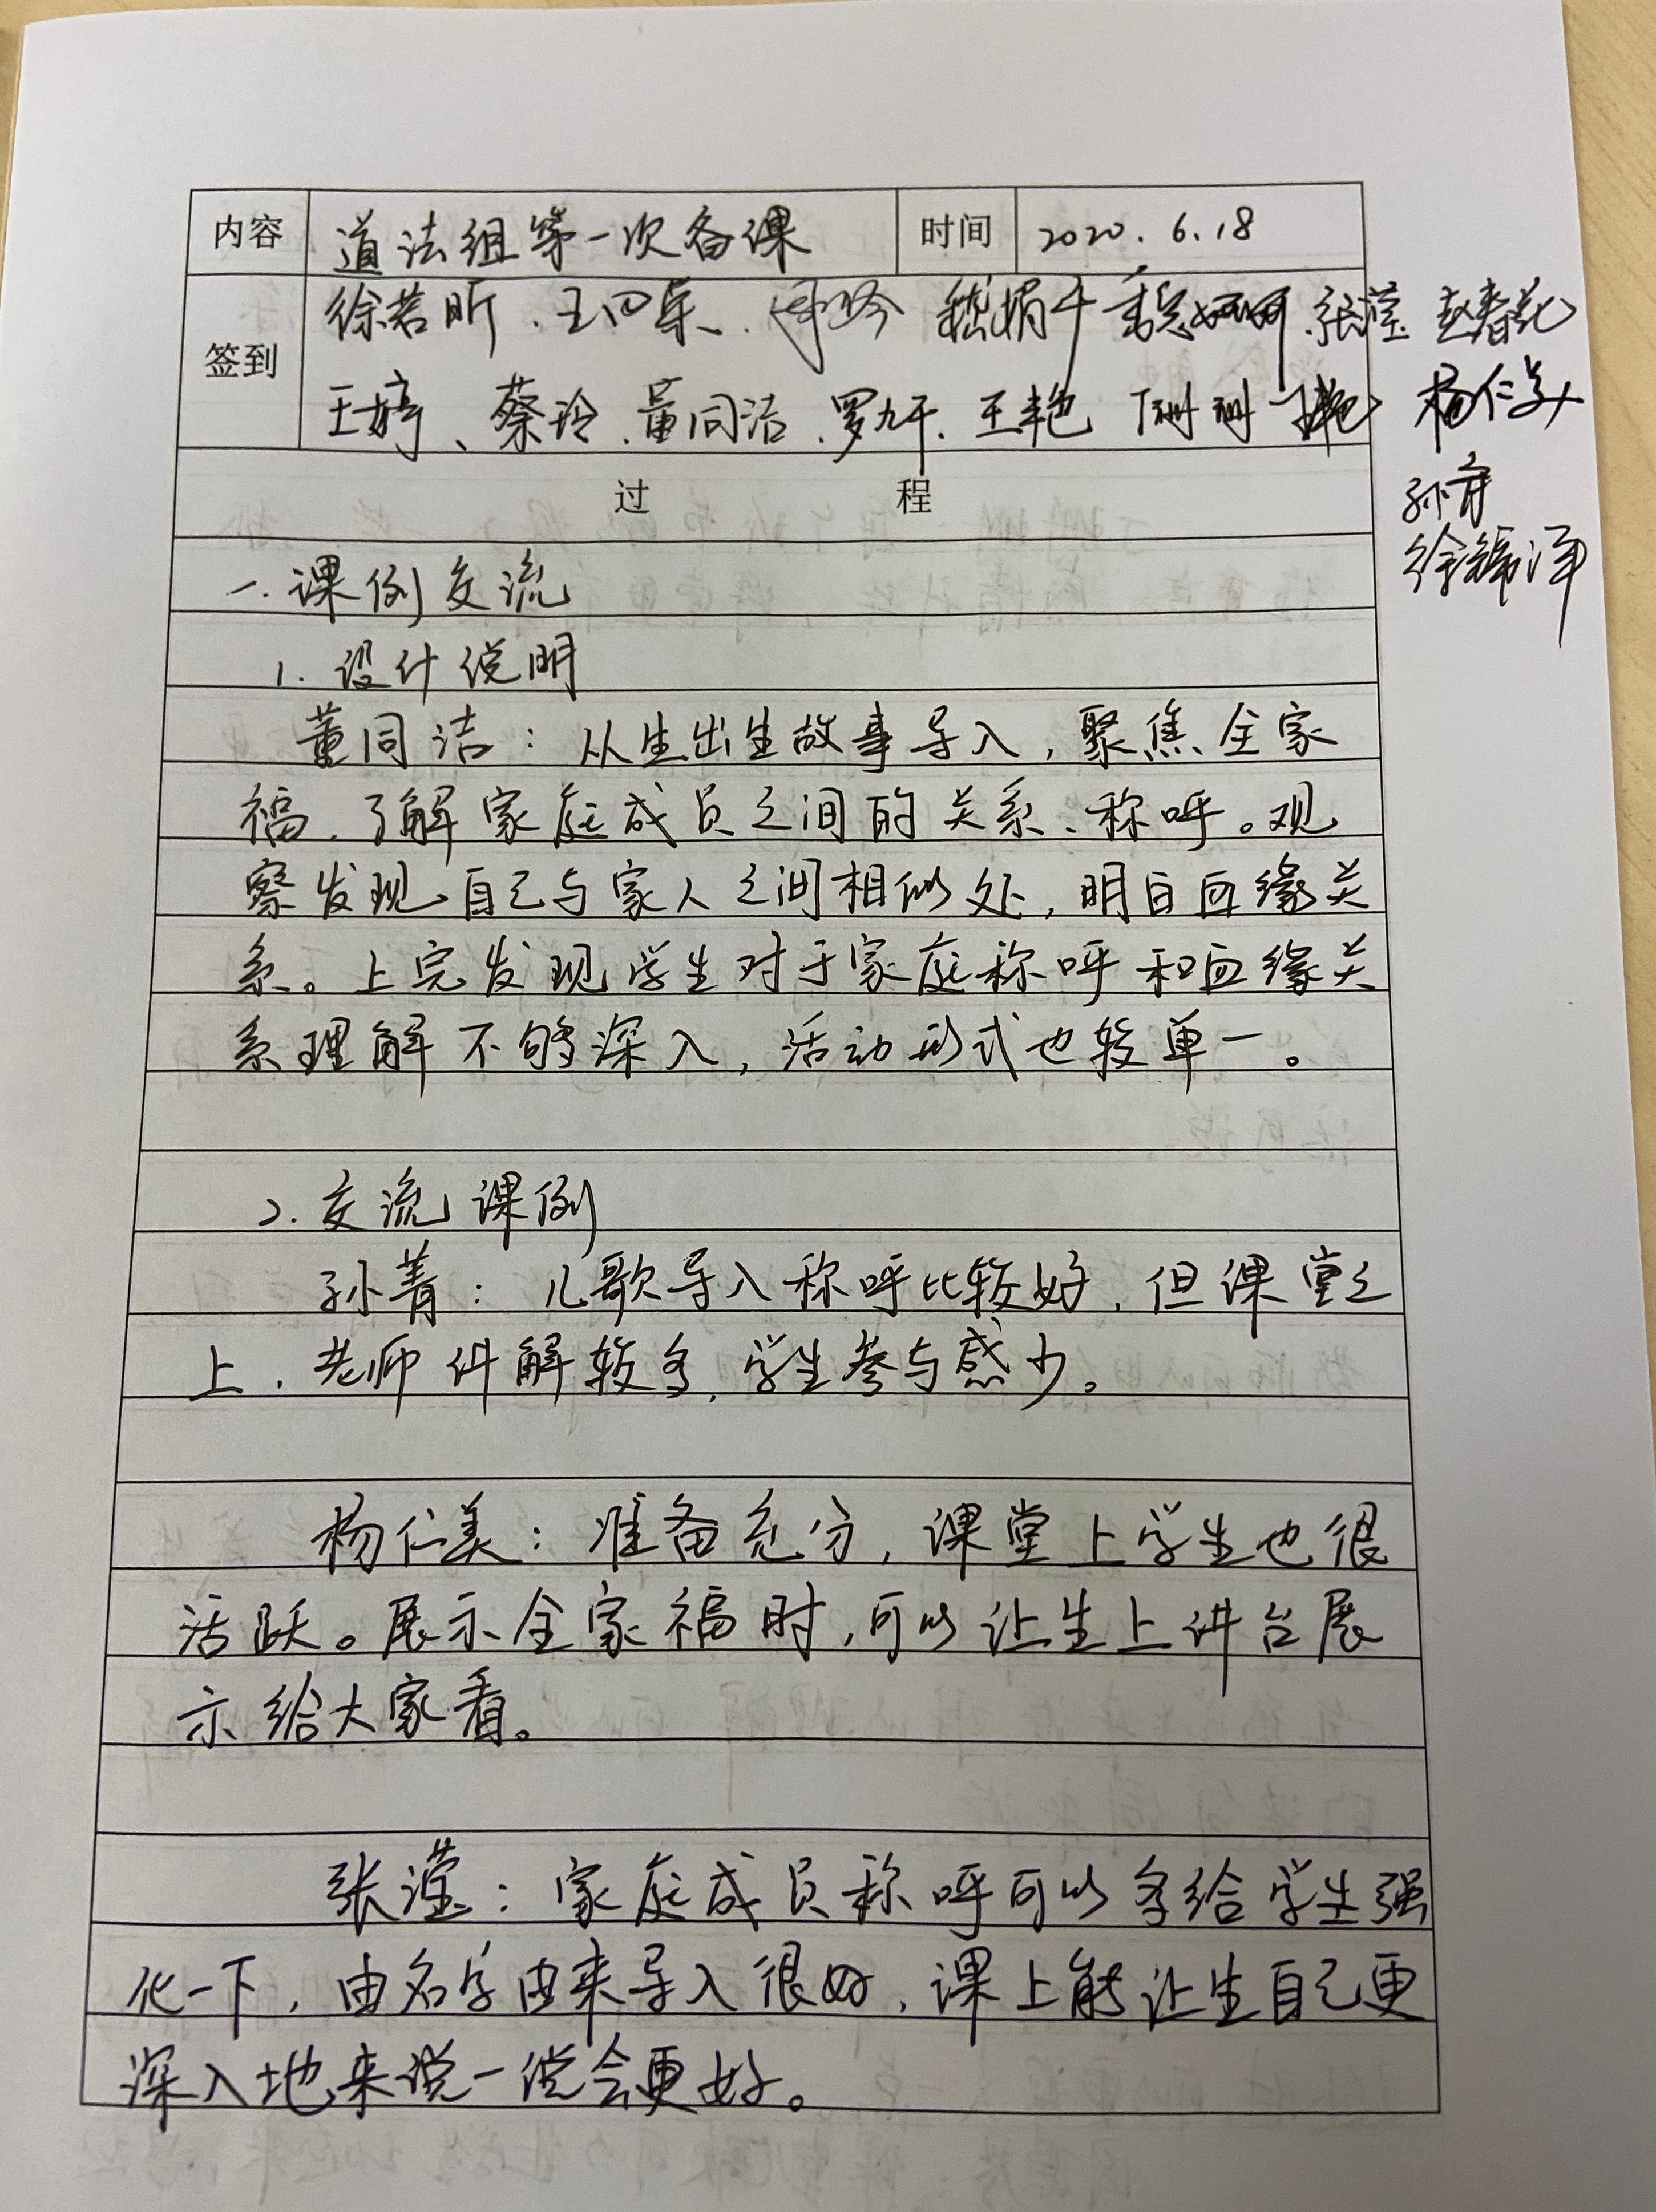 内容 道法组第一次备课 时间 2020.6.18
签到
徐若昕、王 张滢 赵春花
王婷、蔡玲、董同洁、罗九千、王艳 杨仁美
孙青
徐锦泽
过 程
一.课例交流
1. 设计说明
董同洁：从生出生故事导入，聚焦全家
福、了解家庭成员之间的关系、称呼。观
察发现自己与家人之间相似处，明白血缘关
系。上完发现学生对于家庭称呼和血缘关
系理解不够深入，活动形式也较单一。
2. 交流课例
孙菁：儿歌导入称呼比较好，但课堂之
上，老师讲解较多，学生参与感少。
杨仁美：准备充分，课堂上学生也很
活跃。展示全家福时，可以让生上讲台展
示给大家看。
张滢：家庭成员称呼可以多给学生强
化一下，由名字由来导入很好，课上能让生自己更
深入地来说一说会更好。